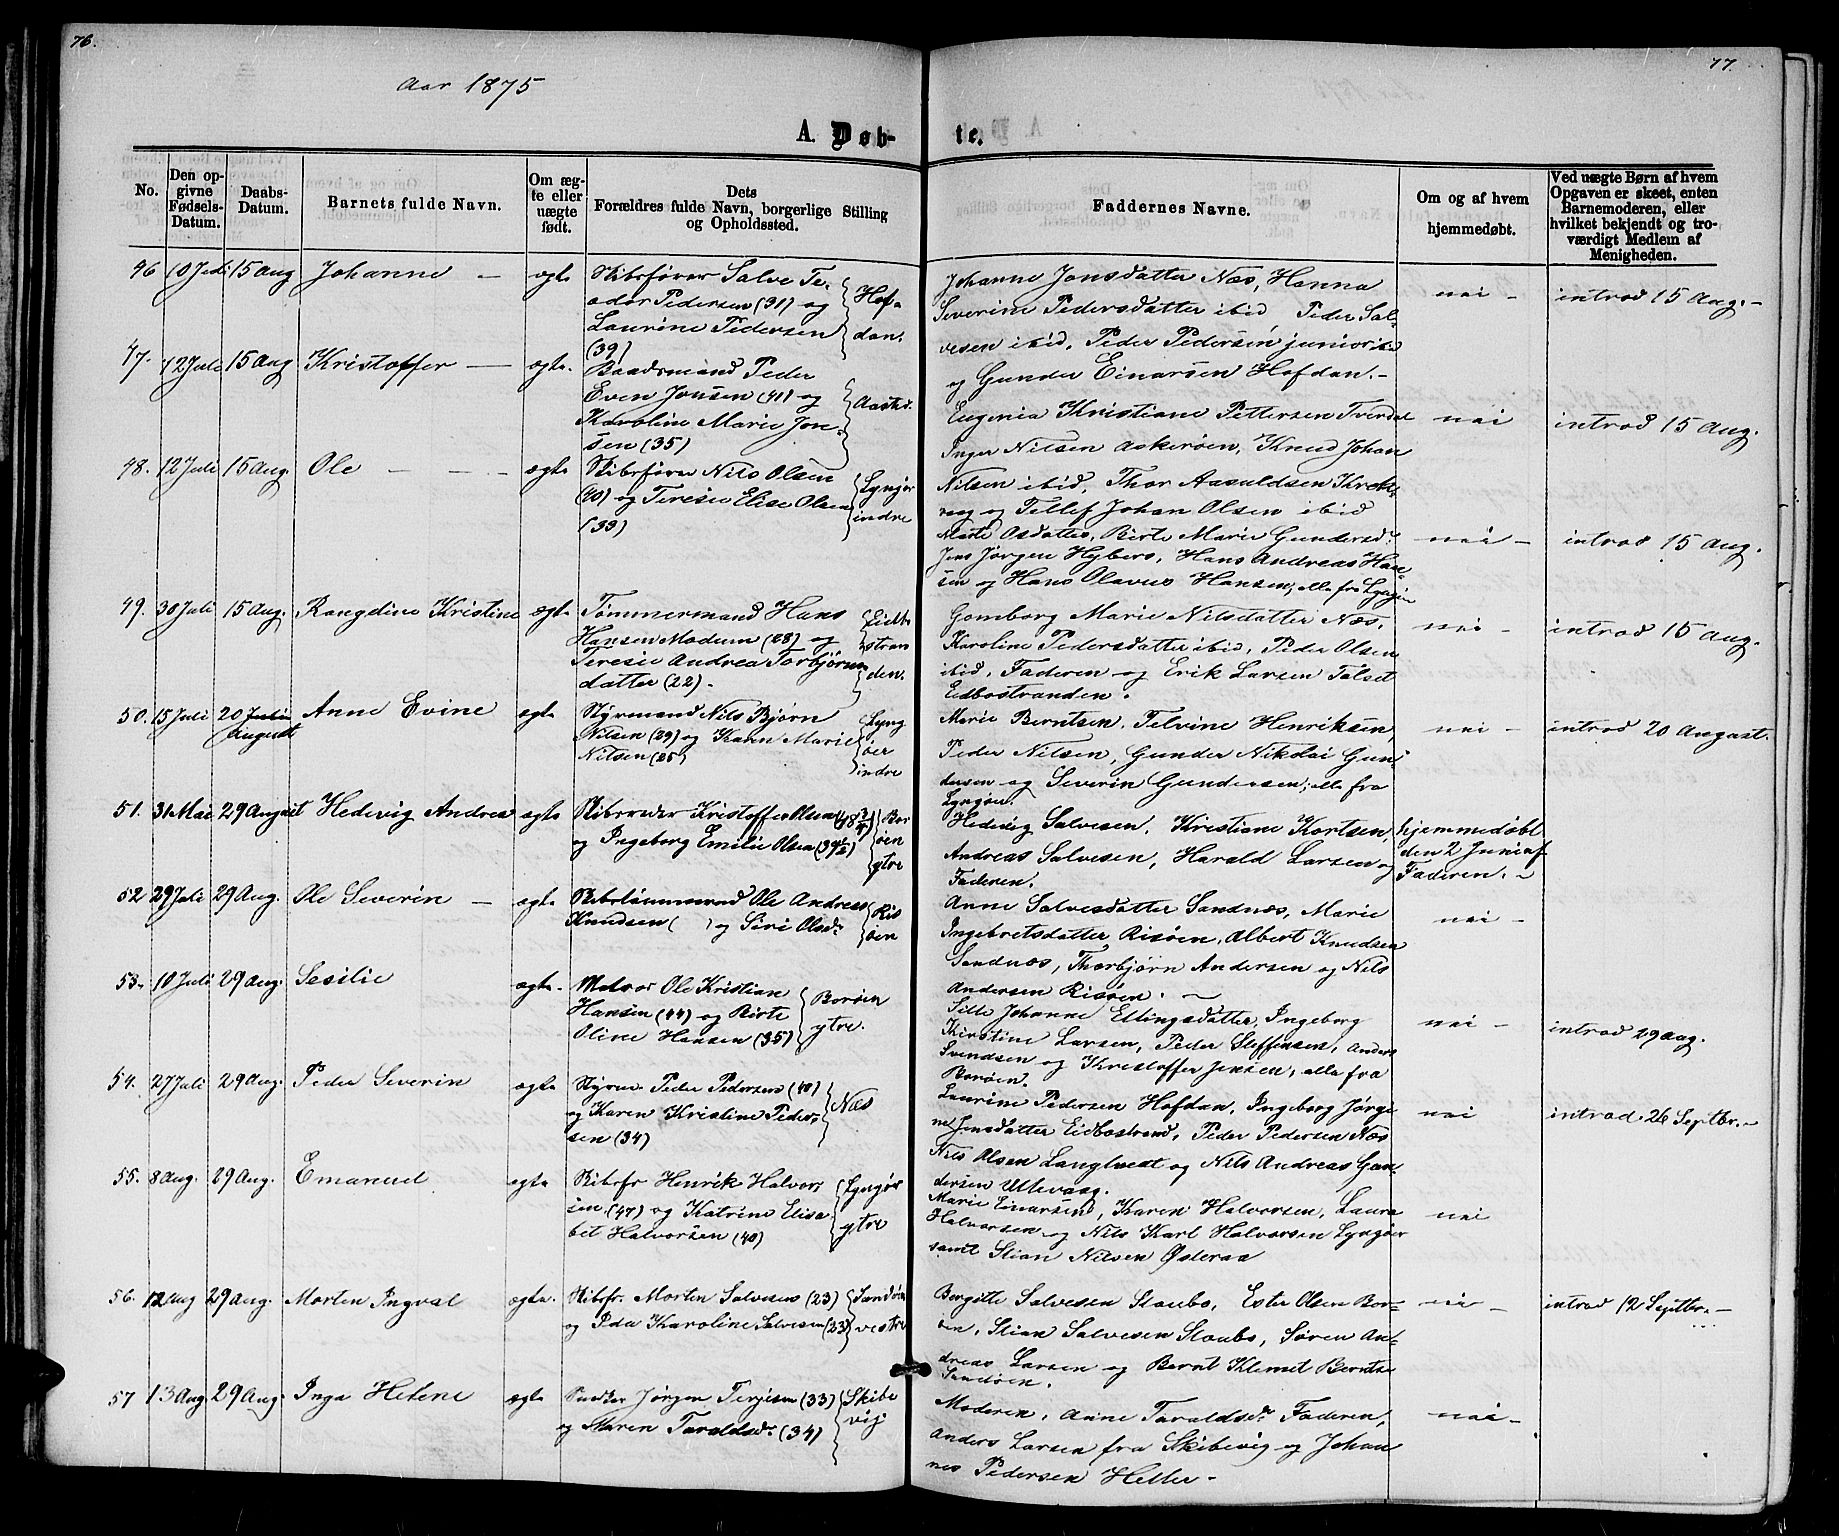 76.
77.
Aar 1875
A. Døb-
te.
No.
Den op-
givne
Fødsels-
Datum.
Daabs-
Datum.
Barnets fulde Navn.
Om æg-
te eller
uægte
født.
Dets
Forældres fulde Navn, borgerlige Stilling
og Opholdssted.
Faddernes Navne.
Om og af hvem
hjemmedøbt.
Ved uægte Børn af hvem
Opgaven er skeet, enten
Barnemoderen, eller
hvilket bekjendt og tro-
værdigt Medlem af
Menigheden.
46 10 Juli 15 Aug Johanne — ægte
Skibsfører Salve Te-
odor Pedersen (31) og
Laurine Pedersen
(39)
Hof-
dan.
Johanne Jonsdatter Næs, Hanna
Severine Pedersdatter ibid, Peder Sal-
vesen ibid, Peder Pedersen junior
og Gunder Einarsen Hofdan. -
nei -
introd 15 Aug. -
47. 12 Juli 15 Aug Kristoffer — ægte.
Baadsmand Peder
Even Jonsen (41) og
Karoline Marie Jon-
sen (35)
Eugenia Kristiane Pettersen Tverdal
Inger Nilsen Askerøen, Knud Johan
Nilsen ibid, Thor Aasuldsen
og Tellef Johan Olsen ibid
nei
introd 15 Aug.
48. 12 Juli 15 Aug. Ole — — - ægte
Skibsfører Nils Olsen
(40) og Teresie Elise Olsen
(33)
Lyngør
indre
Marte Osdatter, Birte Marie Gundersd.
Jens Jørgen Hyberg, Hans Andreas Han-
sen og Hans Olavus Hansen; alle fra Lyngør
nei -
introd 15 Aug.
49. 30 Juli 15 Aug. Rangdine Kristine ægte
Tømmermand Hans
Hansen Modum (28) og
Teresie Andrea Torbjørns
datter (22) -
Eidbo
stran
den.
Gomborg Marie Nilsdatter Næs,
Karoline Pedersdatter ibid, Peder Olsen
ibid, Faderen og Erik Larsen
Eidbostranden.
nei -
introd 15 Aug.
50. 15 Juli 20 Juli
August
Anne Evine ægte
Styrmand Nils Bjørn
Nilsen (29) og Karen Marie
Nilsen (25)
Lyng
øer
indre
Marie Berntsen, Telvine Henriksen,
Peder Nilsen, Gunder Nikolai Gun-
dersen og Severin Gundersen; alle fra
Lyngøer.
nei -
introd 20 August.
51. 31 Mai 29 August Hedevig Andrea ægte
Skibsreder Kristoffer Olsen
og Ingeborg Emilie Olsen (39½)
Bor
øen
ytre
Hedevig Salvesen, Kristiane Kortsen,
Andreas Salvesen, Harald Larsen og
Faderen.
hjemmedøbt
den 2 Juni af
Faderen. -
52 29 Juli 29 Aug. Ole Severin — ægte
Skibstømmermand Ole Andreas
Knudsen ( ) og Siri Olsdr
Ris
øen
Anne Salvesdatter Sandnæs, Marie
Ingebretsdatter Risøen, Albert Knudsen
Sandnæs, Thorbjørn Andersen og Nils
Andersen Risøen. -
nei -
53. 10 Juli 29 Aug. Sesilie ægte.
Matros Ole Kristian
Hansen (44) og Birte
Oline Hansen (35)
Borøen
ytre.
Sille Johanne Ellingsdatter, Ingeborg
Kirstine Larsen, Peder Steffensen, Anders
Svendsen og Kristoffer Jensen, alle fra
Borøen.
nei -
introd 29 Aug.
54. 27 Juli 29 Aug. Peder Severin ægte
Styrm. Peder Pedersen (40)
og Karen Kristine Peder-
sen (34)
Næs
Laurine Pedersen Hofdan, Ingeborg Jørgi-
ne Jonsdatter Eidbostrand, Peder Pedersen Næs
Nils Olsen Langtvedt og Nils Andreas Gun-
dersen Utevaag.
nei
introd 26 Septbr. -
55. 8 Aug. 29 Aug. Emanuel ægte
Skibsfr Henrik Halvor-
sen (47) og Katrine Elisa
bet Halvorsen (40)
Lyngør
ytre
Marie Einarsen, Karen Halvorsen, Laura
Halvorsen og Nils Karl Halvorsen Lyngør
samt Stian Nilsen Østeraa
nei
56. 12 Aug 29 Aug. Morten Ingval ægte.
Skibsfr. Morten Salvesen (23)
og Ida Karoline Salvesen (23)
Sandøen
vestre
Bergitte Salvesen Staubø, Ester Olsen Bor-
øen, Stian Salvesen Staubø, Søren An-
dreas Larsen og Bernt Klemet Berntsen
Sandøen.
nei -
introd 12 Septbr. -
57 13 Aug 29 Aug. Inga Helene ægte
Snedker Jørgen Terjesen (33)
og Maren Taraldsdr (34)
Skibs
vig
Moderen, Anne Taraldsdr Faderen,
Anders Larsen fra Skibsvig og Johan
nes Pedersen Heller -
nei -